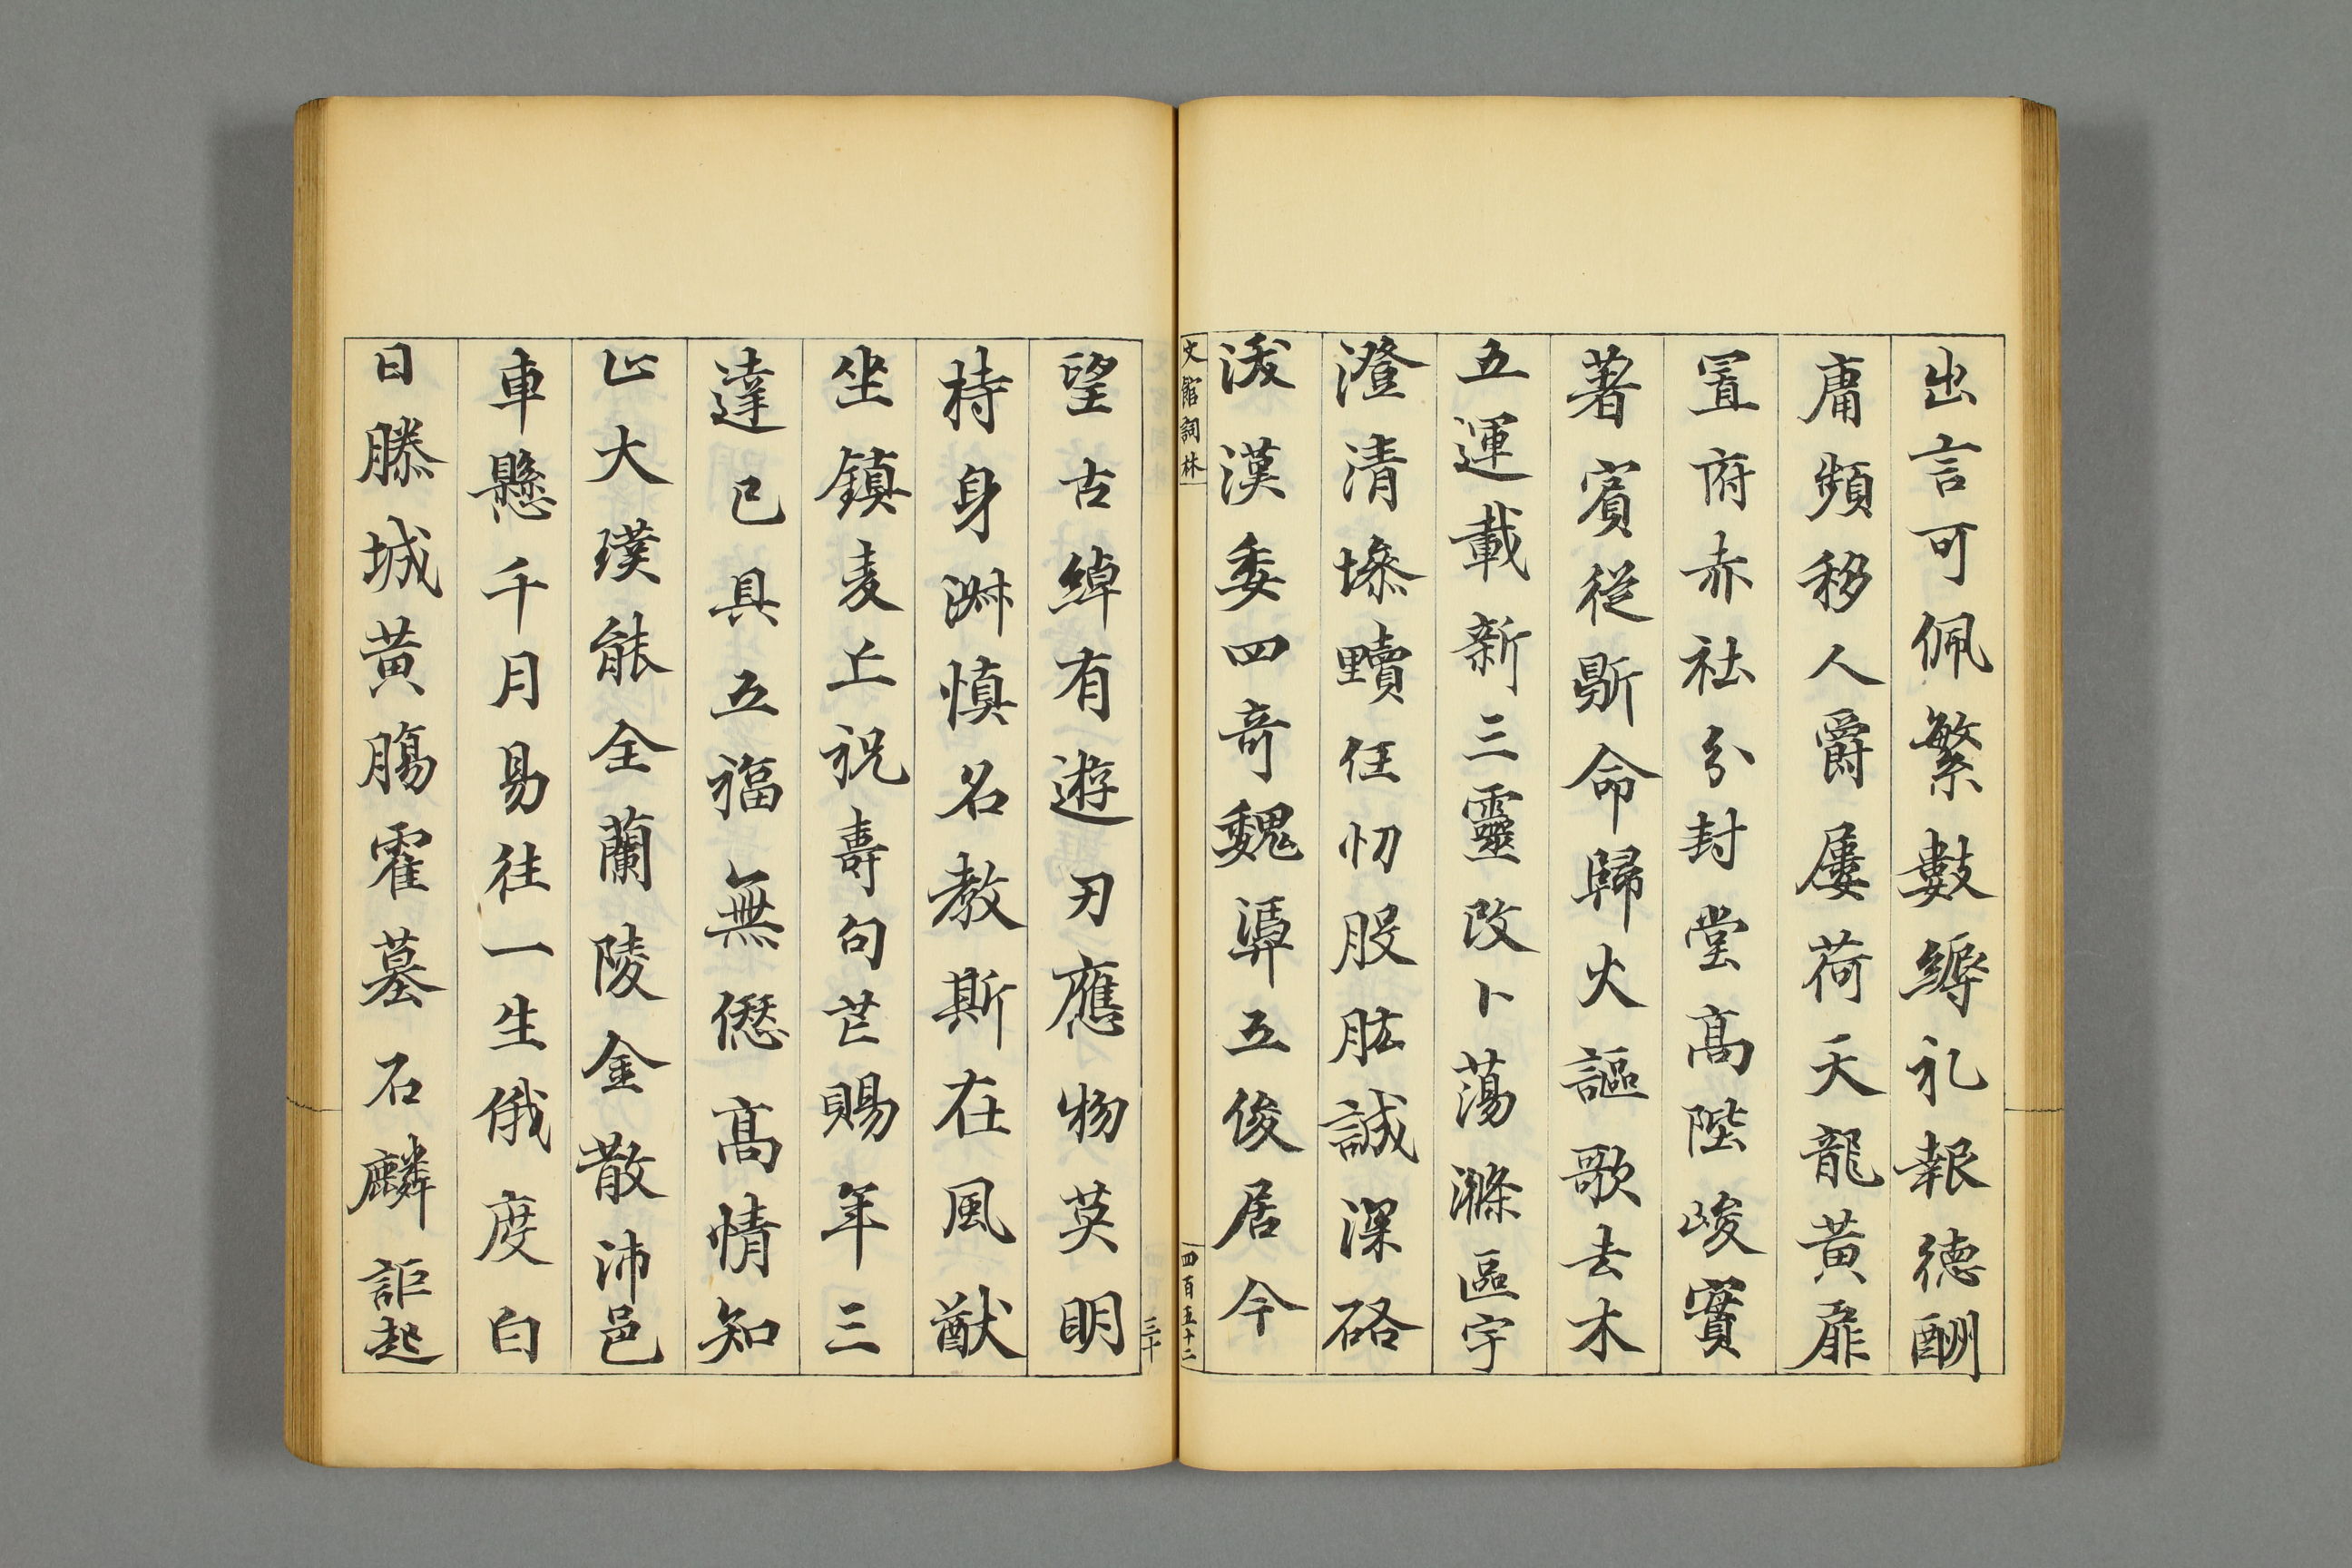 出言可佩繁數縟礼報德酬
庸頻移人爵屢荷天龍黃扉
置府赤社分封堂高陛峻實
著賓從斵命歸火謳歌去木
五運載新三靈改卜蕩滌區宇
澄清墋黷任切股肱誠深硌
漢委四奇魏淂五俊居今
文館詞林
四百五十二
三十
望古綽有遊刃應物莫明
持身淋慎名教斯在風猷
坐鎮麦丘祝壽句芒賜年三
達已具五福無僁高情知
止大璞能全蘭陵金散沛邑
車懸千月易往一生俄度白
日滕城黃腸霍墓石麟詎起